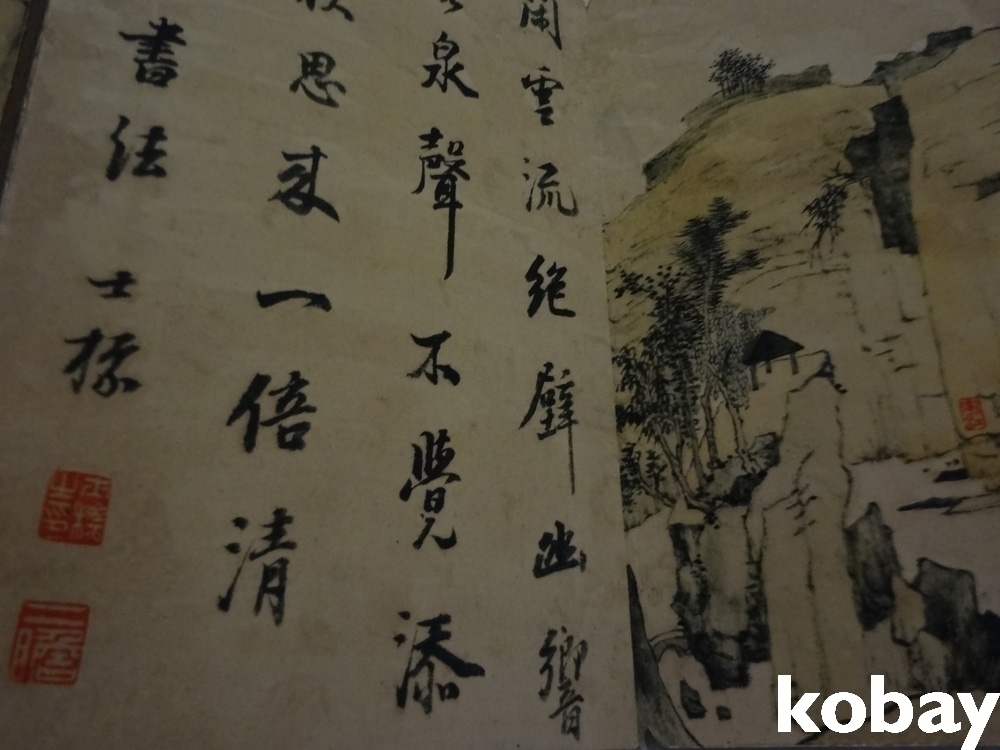 閑雲流絕壁幽響
泉聲不覺添
思來一倍清
書法
士標
二瞻
kobay